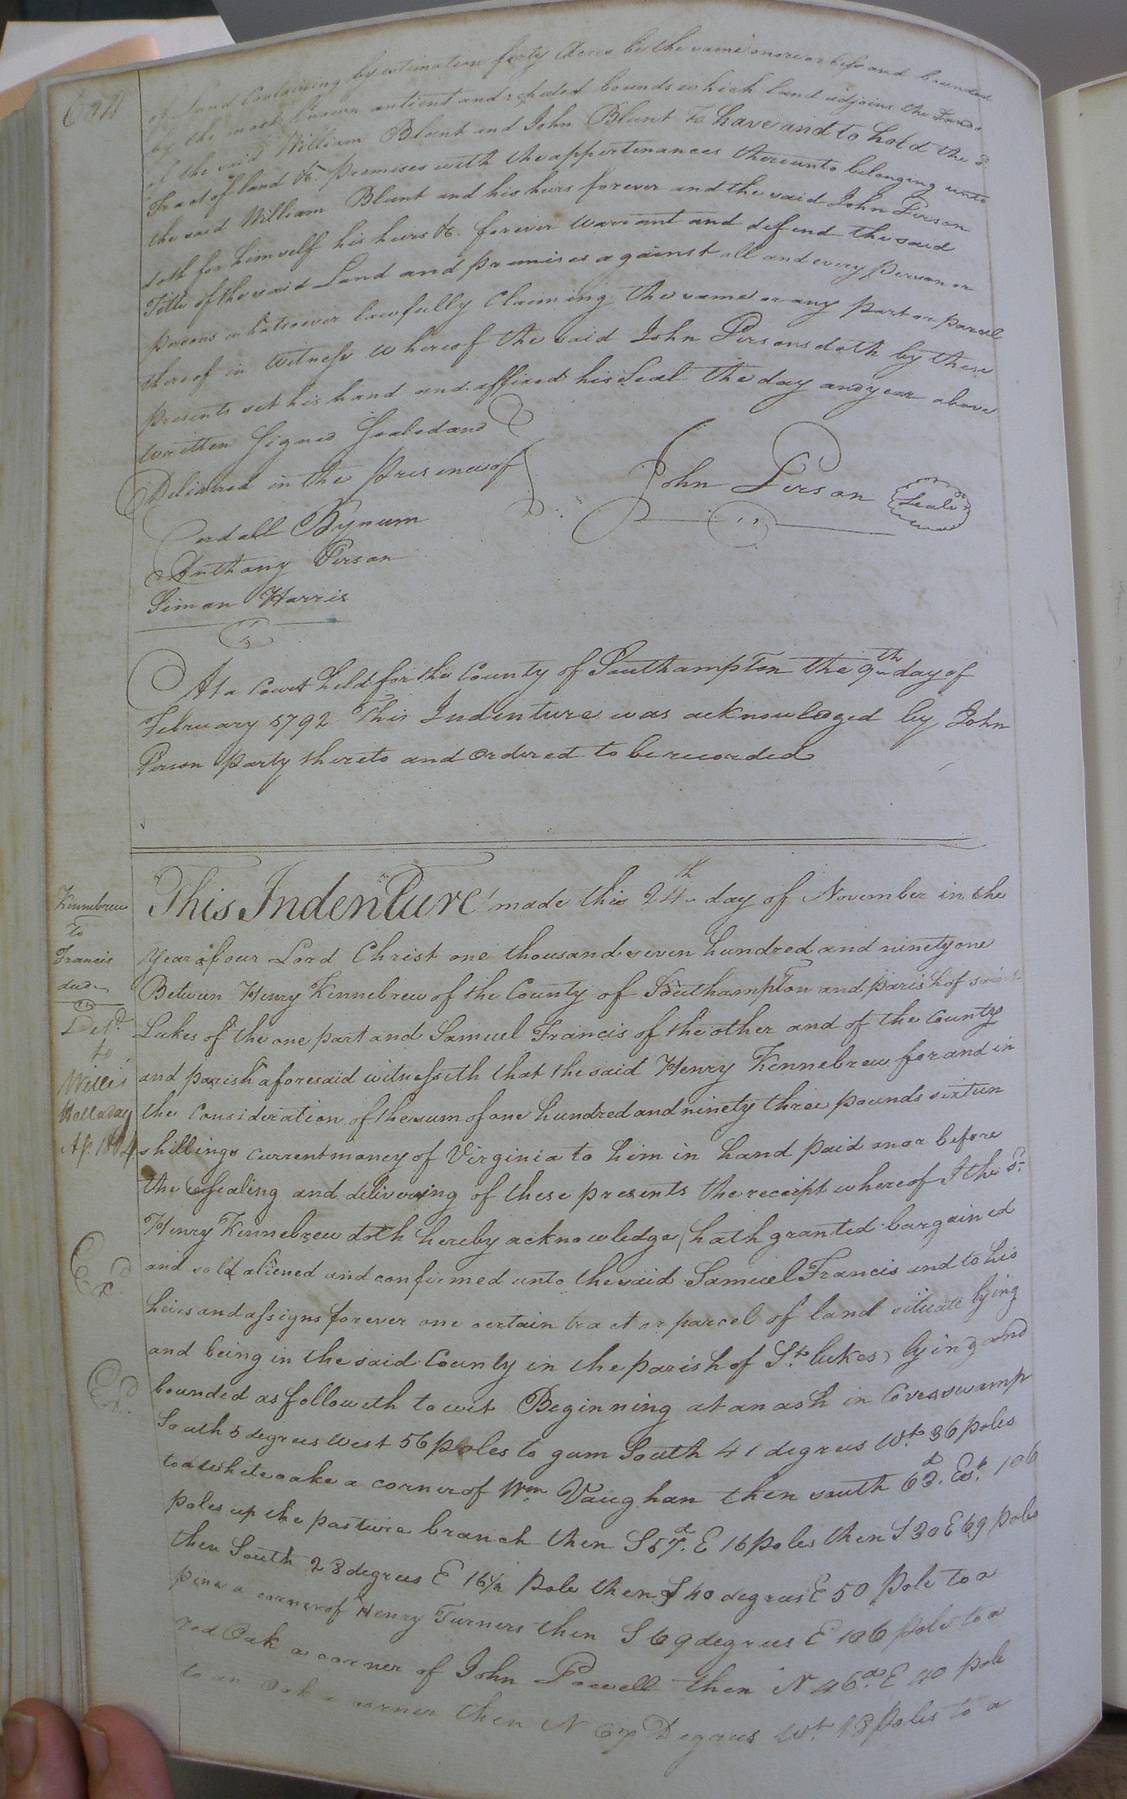 of land containing by estimation forty Acres be the same more or less and bounded
by the most known antient and reputed bounds which land adjoins the Lands
of the said William Blunt and John Blunt To have and to hold the sd
Tract of land &c. Premises with the appertenances thereunto belonging unto
the said William Blunt and his heirs forever and the said John Person
doth for himself his heirs &c. forever warrant and defend the said
Title of the said Land and premises against all and every person or
persons whatsoever lawfully Claiming the same or any part or parcel
thereof in Witness whereof the said John Persons doth by these
presents set his hand and affixed his Seal the day and year above
written Signed Sealed and
Delivered in the presence of
John Person Seal
Cordall Bynum
Anthony Person
Simon Harris
At a Court held for the County of Southampton the 9th day of
February 1792 This Indenture was acknowledged by John
Person party thereto and ordered to be recorded
Kinnebrew
To
Francis
deed
Deld
to
Willis
Holladay
Ap. 1804
Exd
Exd
This Indenture made this 24th day of November in the
Year of our Lord Christ one thousand seven hundred and ninety one
Between Henry Kennebrew of the County of Southampton and parish of saint
Lukes of the one part and Samuel Francis of the other and of the County
and parish aforesaid witnesseth that the said Henry Kennebrew for and in
the Consideration of the sum of one hundred and ninety three pounds sixteen
shillings current money of Virginia to him in hand paid on or before
the ensealing and delivering of these presents the receipt whereof I the sd
Henry Kennebrew doth hereby acknowledge, hath granted bargained
and sold aliened and confirmed unto the said Samuel Francis and to his
heirs and assigns forever one certain tract or parcel of land situate lying
and being in the said County in the parish of St. lukes, lying and
bounded as followeth to wit Beginning at an ash in swamp
South 5 degrees West 56 poles to gum South 41 degrees Wt. 36 poles
to a white oake a corner of Wm Vaughan then south 63d. Est. 106
poles up the pasture branch then S 57d. E 16 poles then S 30 E 69 poles
then South 28 degrees E 16 1/2 pole then S 40 degrees E 50 pole to a
pine a corner of Henry Turners then S 69 degrees E 106 pole to a
red Oak a corner of John Powell then N 46d. E 40 pole
to an Oak a corner then N Degrees Wt. 18 poles to a